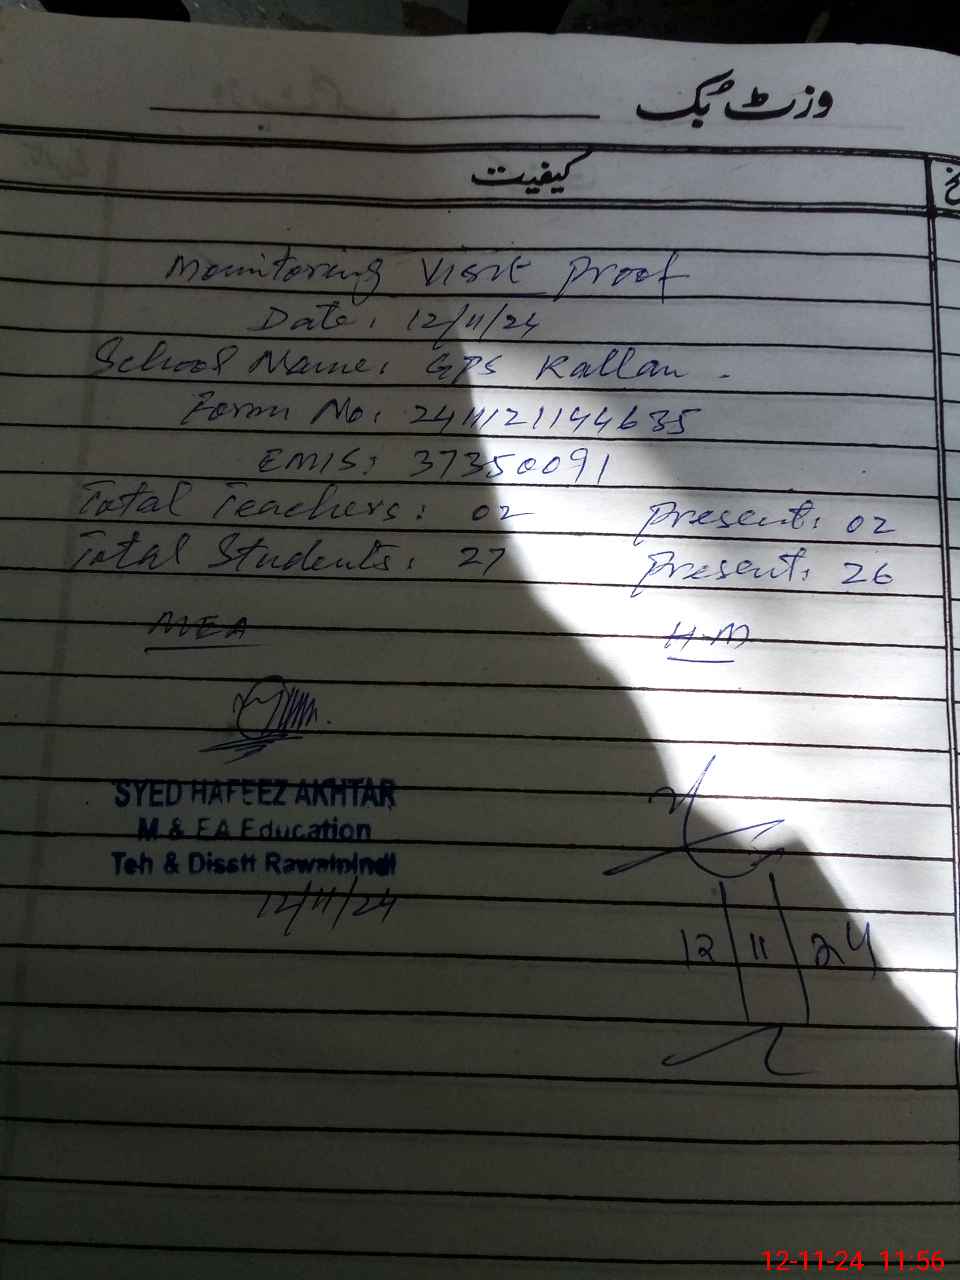 وزٹ بک
کیفیت
Monitoring Visit Proof
Date: 12/11/24
School Name: GPS Kallan.
Form No: 2411121194635
EMIS: 37350091
Total Teachers: 02 Present: 02
Total Students: 27 Present: 26
MEA H.M
SYED HAFEEZ AKHTAR
M & EA Education
Teh & Disstt Rawalpindi
12/11/24
12 | 11 | 24
12-11-24 11:56